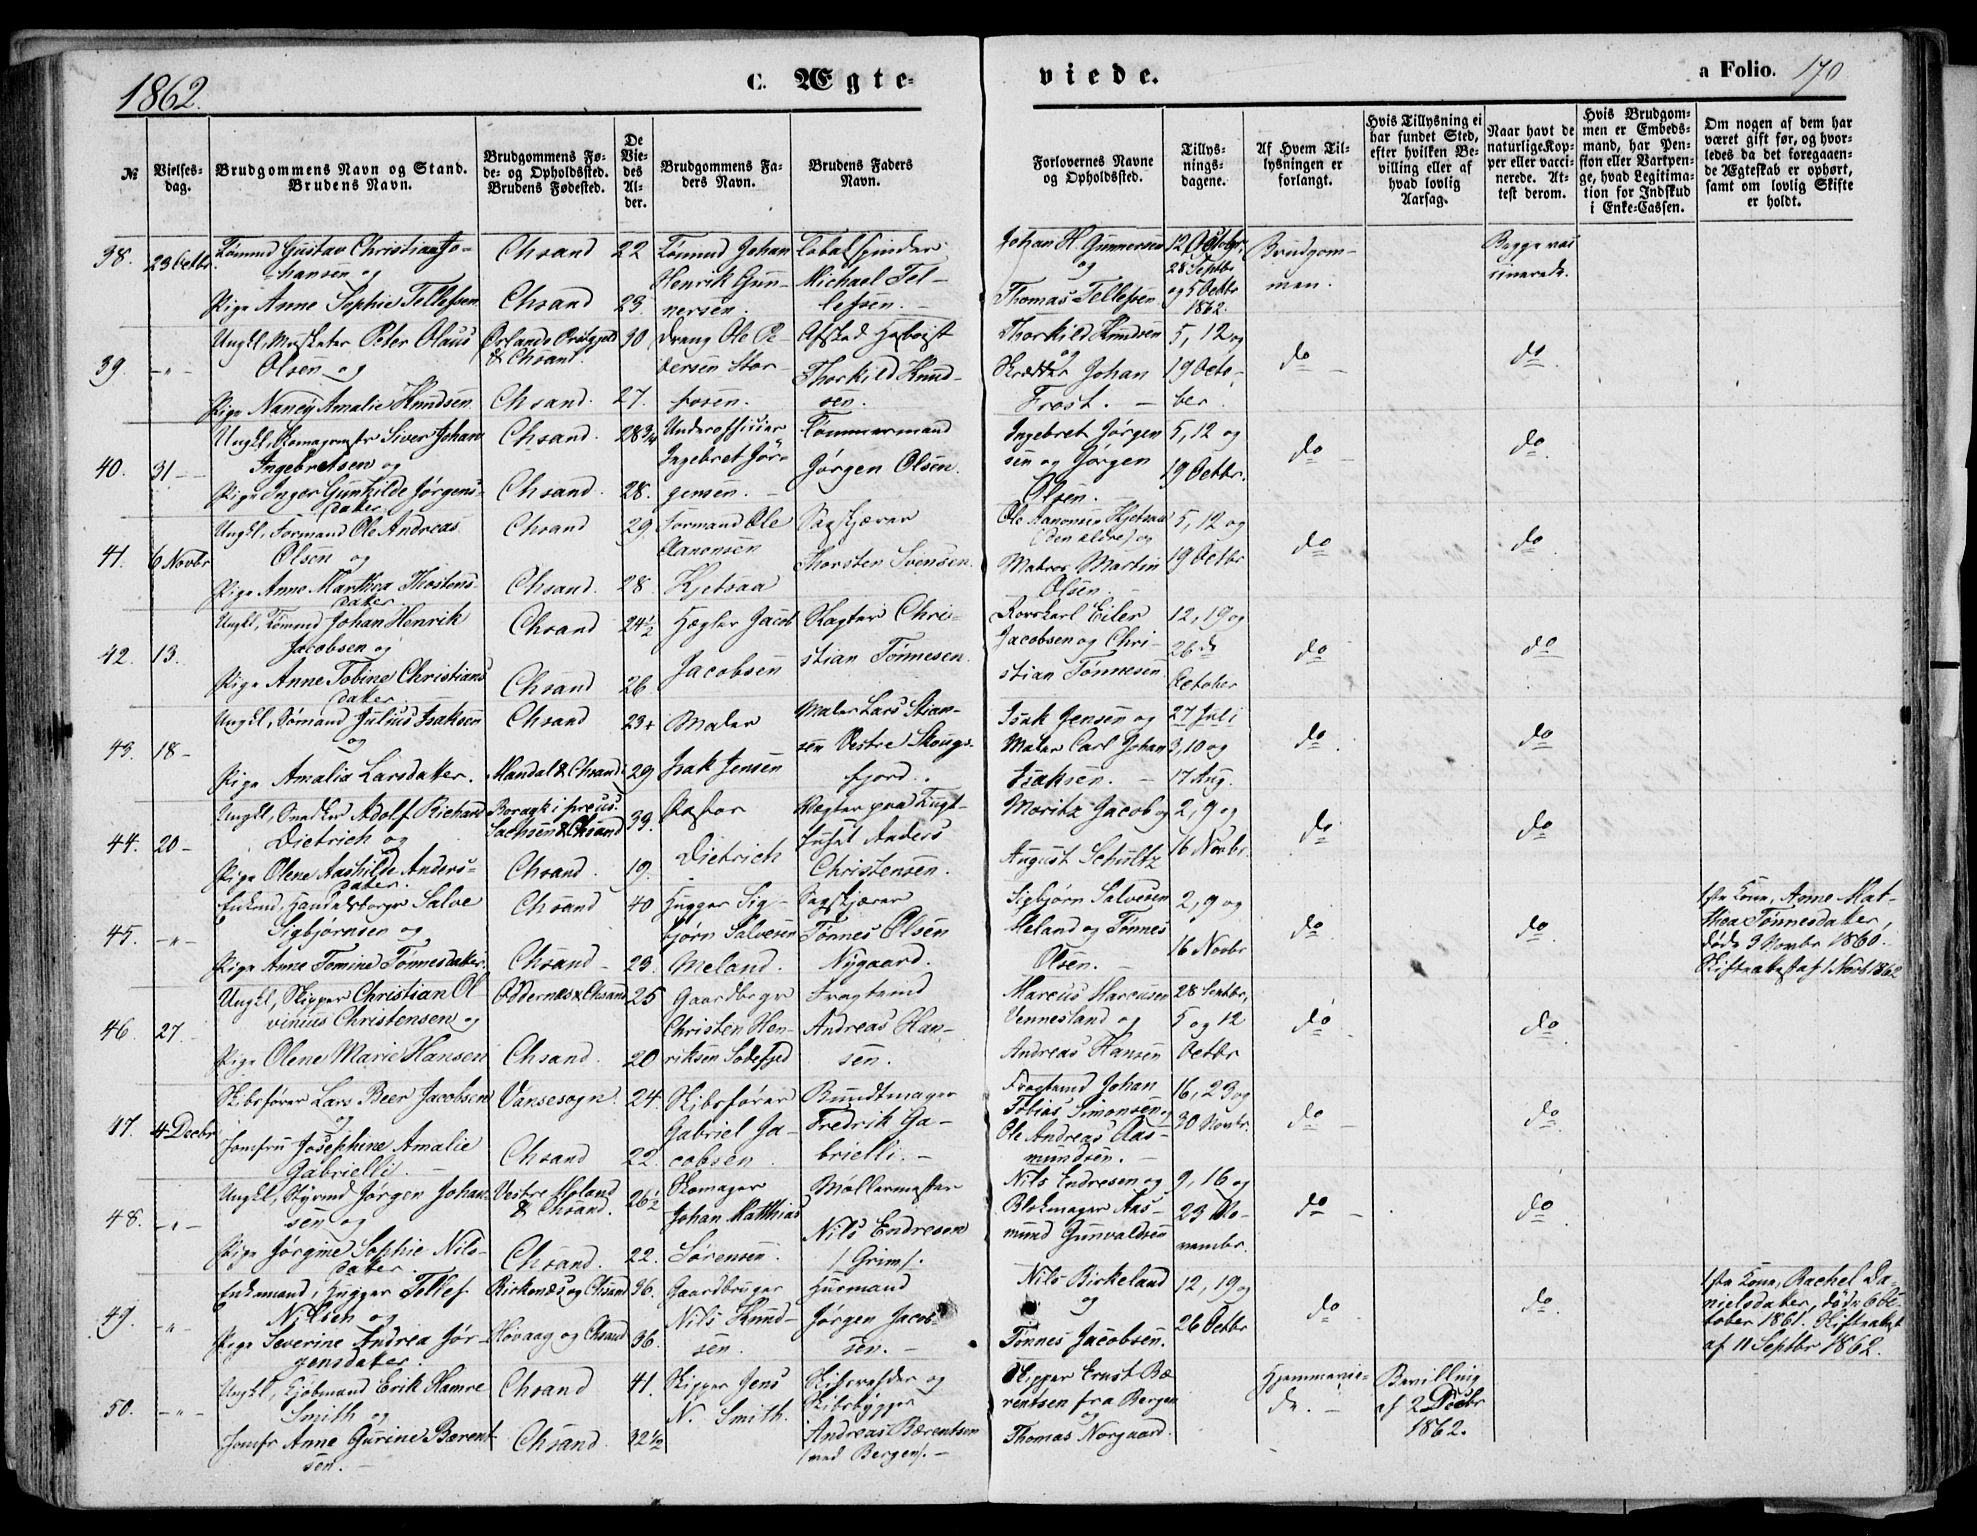 1862.
C. Ægte-
viede.
a Folio. 170
№
Vielses-
dag.
Brudgommens Navn og Stand.
Brudens Navn.
Brudgommens Fø-
de- og Opholdssted.
Brudens Fødested.
De
Vie-
des
Al-
der.
Brudgommens Fa-
ders Navn.
Brudens Faders
Navn.
Forlovernes Navne
og Opholdssted.
Tillys-
nings-
dagene.
Af Hvem Til-
lysningen er
forlangt.
Hvis Tillysning ei
har fundet Sted,
efter hvilken Be-
villing eller af
hvad lovlig
Aarsag.
Naar havt de
naturlige Kop-
per eller vacci-
nerede. At-
test derom.
Hvis Brudgom-
men er Embeds-
mand, har Pen-
sion eller Vartpen-
ge, hvad Legitima-
tion for Indskud
i Enke-Cassen.
Om nogen af dem har
været gift før, og hvor-
ledes da det foregaaen-
de Ægteskab er ophørt,
samt om lovlig Skifte
er holdt.
38. 23 Octbr. Tømmd Gustav Christian Jo-
hansen og
Pige Anne Sophie Tellefsen
Chsand 22
Chsand 23.
Tømmd Johan
Henrik Gun-
nersen.
Tobakspinder
Michael Tel-
lefsen.
Johan H. Gunnersen
og
Thomas Tellefsen
12 October,
28 Septbr
og 5 Octbr
1862.
Brudgom-
men.
Begge vac-
cinerede.
39. -"- Ungkl, Musketer Peter Olaus
Olsen og
Pige Nancy Amalie Knudsen
Ørlands Præstgjeld
& Chsand.
30
Chsand. 27.
Dreng Ole Pe-
dersen Stor-
fosen.
Afsked Hoboist
Thorkild Knud-
sen.
Thorkild Knudsen
og
Skrædder Johan
Frost. -
5, 12 og
19 Octo-
ber.
do
do
40. 31 - Ungkl, Skomagermstr Siver Johan
Ingebretsen og
Pige Inger Gunhilde Jørgens-
datter
Chsand. 28 3/4
Chsand. 28.
Underofficier
Ingebret Jør-
gensen.
Tømmermand
Jørgen Olsen.
Ingebret Jørgen
sen og Jørgen
Olsen. -
5, 12 og
19 Octbr.
do
do
41. 6 Novbr Ungkl, Formand Ole Andreas
Olsen og
Pige Anne Marthea Thostens-
datter
Chsand 29.
Chsand. 28
Formand Ole
Aanonsen
Kjetsaa
Sagskjærer
Thorsten Svensen.
Ole Aanonsen Kjetsaa
(den ældre) og
Matros Martin
Olsen. -
5, 12 og
19 Octbr
do
do
42. 13. Ungkl, Tømmd Johan Henrik
Jacobsen og
Pige Anne Tobine Christians
datter
Chsand 24 1/2
Chsand 26
Hægler Jacob
Jacobsen
Vægter Chri-
stian Tønnesen.
Rorskarl Eiler
Jacobsen og Chri-
stian Tønnesen
12, 19 og
26 de
October
do
do
43. 18 - Ungkl, Sømand Julius Isaksen
og
Pige Amalia Larsdatter.
Chsand 23
Mandal & Chsand 29
Maler
Isak Jensen
Maler Lars Stian-
sen Vestre Skougs-
fjord.
Isak Jensen og
Maler Carl Johan
Isaksen. -
27 Juli
3, 10 og
17 Aug.
do
do
44. 20 - Ungkl, Snedker Adolf Richard
Dietrich og
Pige Olene Aashilde Anders-
datter.
i preus.
Sachsen & Chsand 39.
Chsand. 19.
Pastor
Dietrich
Vægter paa Tugt-
huset Anders
Christensen.
Moritz Jacob og
August Schultz
2, 9 og
16 Novbr.
do
do
45. -"- Enkemd, Handelsborger Salve
Sigbjørnsen og
Pige Anne Tomine Tønnesdatter.
Chsand 40
Chsand - 23.
Hugger Sig-
bjørn Salvesen
Meland.
Sagskjærer
Tønnes Olsen
Nygaard.
Sigbjørn Salvesen
Meland og Tønnes
Olsen. -
2, 9 og
16 Novbr
do
do
1ste Kone, Anne Mat-
thea Tønnesdatter,
døde 9 Novbr 1860.
Skifteattest af 1 Novb 1862
46. 27. Ungkl, Skipper Christian Ol
vinius Christensen og
Pige Olene Marie Hansen
Oddernæs & Chsand 25
Chsand. 20
Gaardbrgr
Christen Hen-
riksen Sødefjed
Fragtemd
Andreas Han-
sen.
Marcus Marcusen
Vennesland og
Andreas Hansen
28 Septbr,
5 og 12
Octbr
do
do
47. 4 Decbr Skibsfører Lars Beer Jacobsen
og
Jomfru Josephine Amalie
Gabrielli. -
Vansesogn. 24.
Chsand 22.
Skibsfører
Gabriel Ja-
cobsen
Bundtmager
Fredrik Ga-
brielli. -
Fragtemd Johan
Tobias Simonsen og
Ole Andreas Aas-
mundsen. -
16, 23 og
30 Novbr.
do
do
48. -"- Ungkl, Styrmd Jørgen Johan-
sen og
Pige Jørgine Sophie Nils-
datter.
Vestre Moland
& Chsand. 26 1/2
Chsand. 22.
Skomager
Johan Matthias
Sørensen.
Møllermester
Nils Endresen
/Grim/.
Nils Endresen og
Blokmager Aas-
mund Gunvaldsen
9, 16 og
23 No-
vember.
do
do
49. -"- Enkemand, Hugger Tellef
Nilsen og
Pige Severine Andrea Jør-
gensdatter.
Birkenæs og Chsand 36.
Høvaag og Chsand 36.
Gaardbruger
Nils Knud-
sen.
Huusmand
Jørgen Jacob-
sen. -
Nils Birkeland
og
Tønnes Jacobsen.
12, 19 og
26 Octbr
do
do
1ste Kone, Rachel Da-
nielsdatter, døde 6 Oc-
tober 1861. Skifteattest
af 11 Septbr 1862.
50. -"- Ungkl, Kjøbmand Erik Hamre
Smith og
Jomfr Anne Gurine Bærent
sen. -
Chsand 41.
Chsand. 32 1/2
Skipper Jens
N. Smith.
Skibsræder og
Skibsbygger
Andreas Bærentsen
(ved Bergen). -
Skipper Ernst Bæ
rentsen fra Bergen
og
Thomas Norgaard.
Hjemmevie-
de. -
Bevilling
af 2 Decbr
1862.